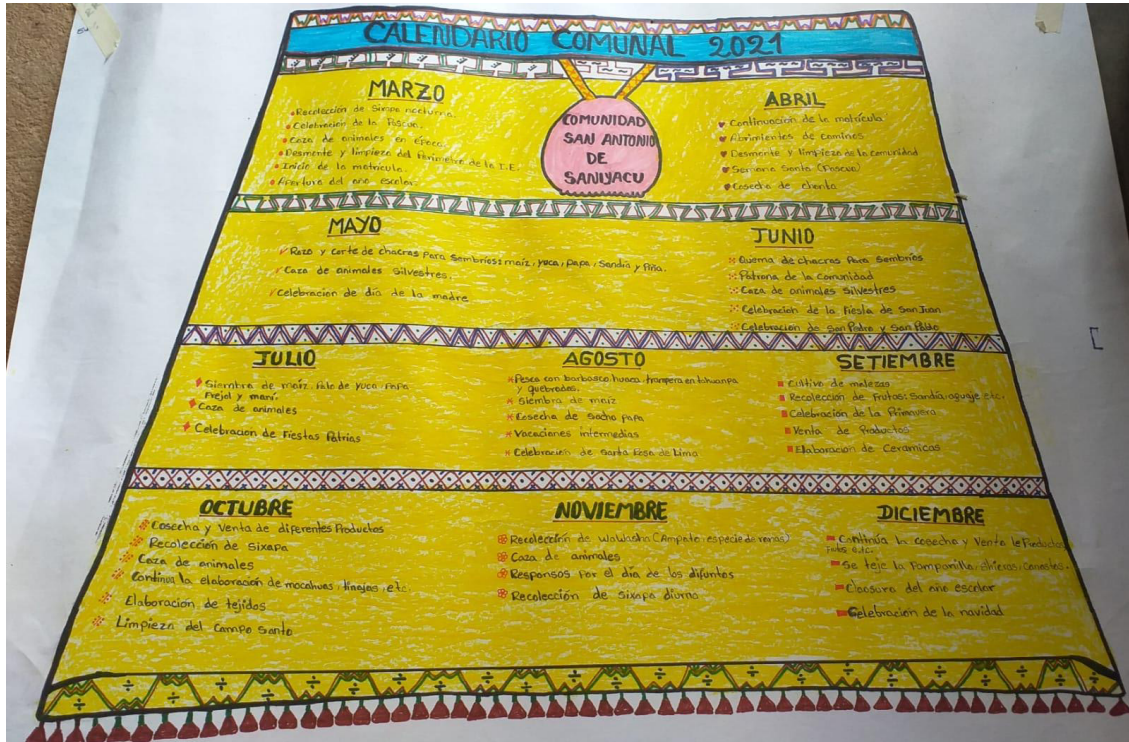 CALENDARIO COMUNAL 2021
COMUNIDAD
SAN ANTONIO
DE
SANIYACU
MARZO
Recolección de Sixapa nocturna.
Celebración de la Pascua.
Caza de animales en época.
Desmonte y limpieza del Perímetro de la I.E.
Inicio de la matrícula.
Apertura del año escolar.
ABRIL
Continuación de la matrícula
Abrimientos de caminos
Desmonte y limpieza de la comunidad
Semana Santa (Pascua)
Cosecha de chonta
MAYO
Rozo y corte de chacras para Sembríos: maíz, yuca, papa, Sandía y Piña.
Caza de animales silvestres.
Celebración de día de la madre
JUNIO
Quema de chacras Para Sembríos
Patrona de la Comunidad
Caza de animales silvestres
Celebración de la Fiesta de San Juan
Celebración de San Pedro y San Pablo
JULIO
Siembra de maíz, Palo de yuca, Papa
Frejol y maní.
Caza de animales
Celebración de Fiestas Patrias
AGOSTO
Pesca con barbasco, huaca, trampera en tahuampa
y quebradas.
Siembra de maíz
Cosecha de sacha papa
Vacaciones intermedias
Celebración de Santa Rosa de Lima
SETIEMBRE
Cultivo de malezas
Recolección de Frutas: Sandía, aguaje, etc.
Celebración de la Primavera
Venta de Productos
Elaboración de Cerámicas
OCTUBRE
Cosecha y Venta de diferentes Productos
Recolección de Sixapa
Caza de animales
Continúa la elaboración de mocahuas, tinajas, etc.
Elaboración de tejidos
Limpieza del Campo Santo
NOVIEMBRE
Recolección de WaWasha (Ampato: especie de ranas)
Caza de animales
Responsos Por el día de los difuntos
Recolección de sixapa diurna
DICIEMBRE
Continúa la cosecha y Venta de Productos
etc.
Se teje la Pampanilla, shicras, Canastas.
Clausura del año escolar
Celebración de la navidad